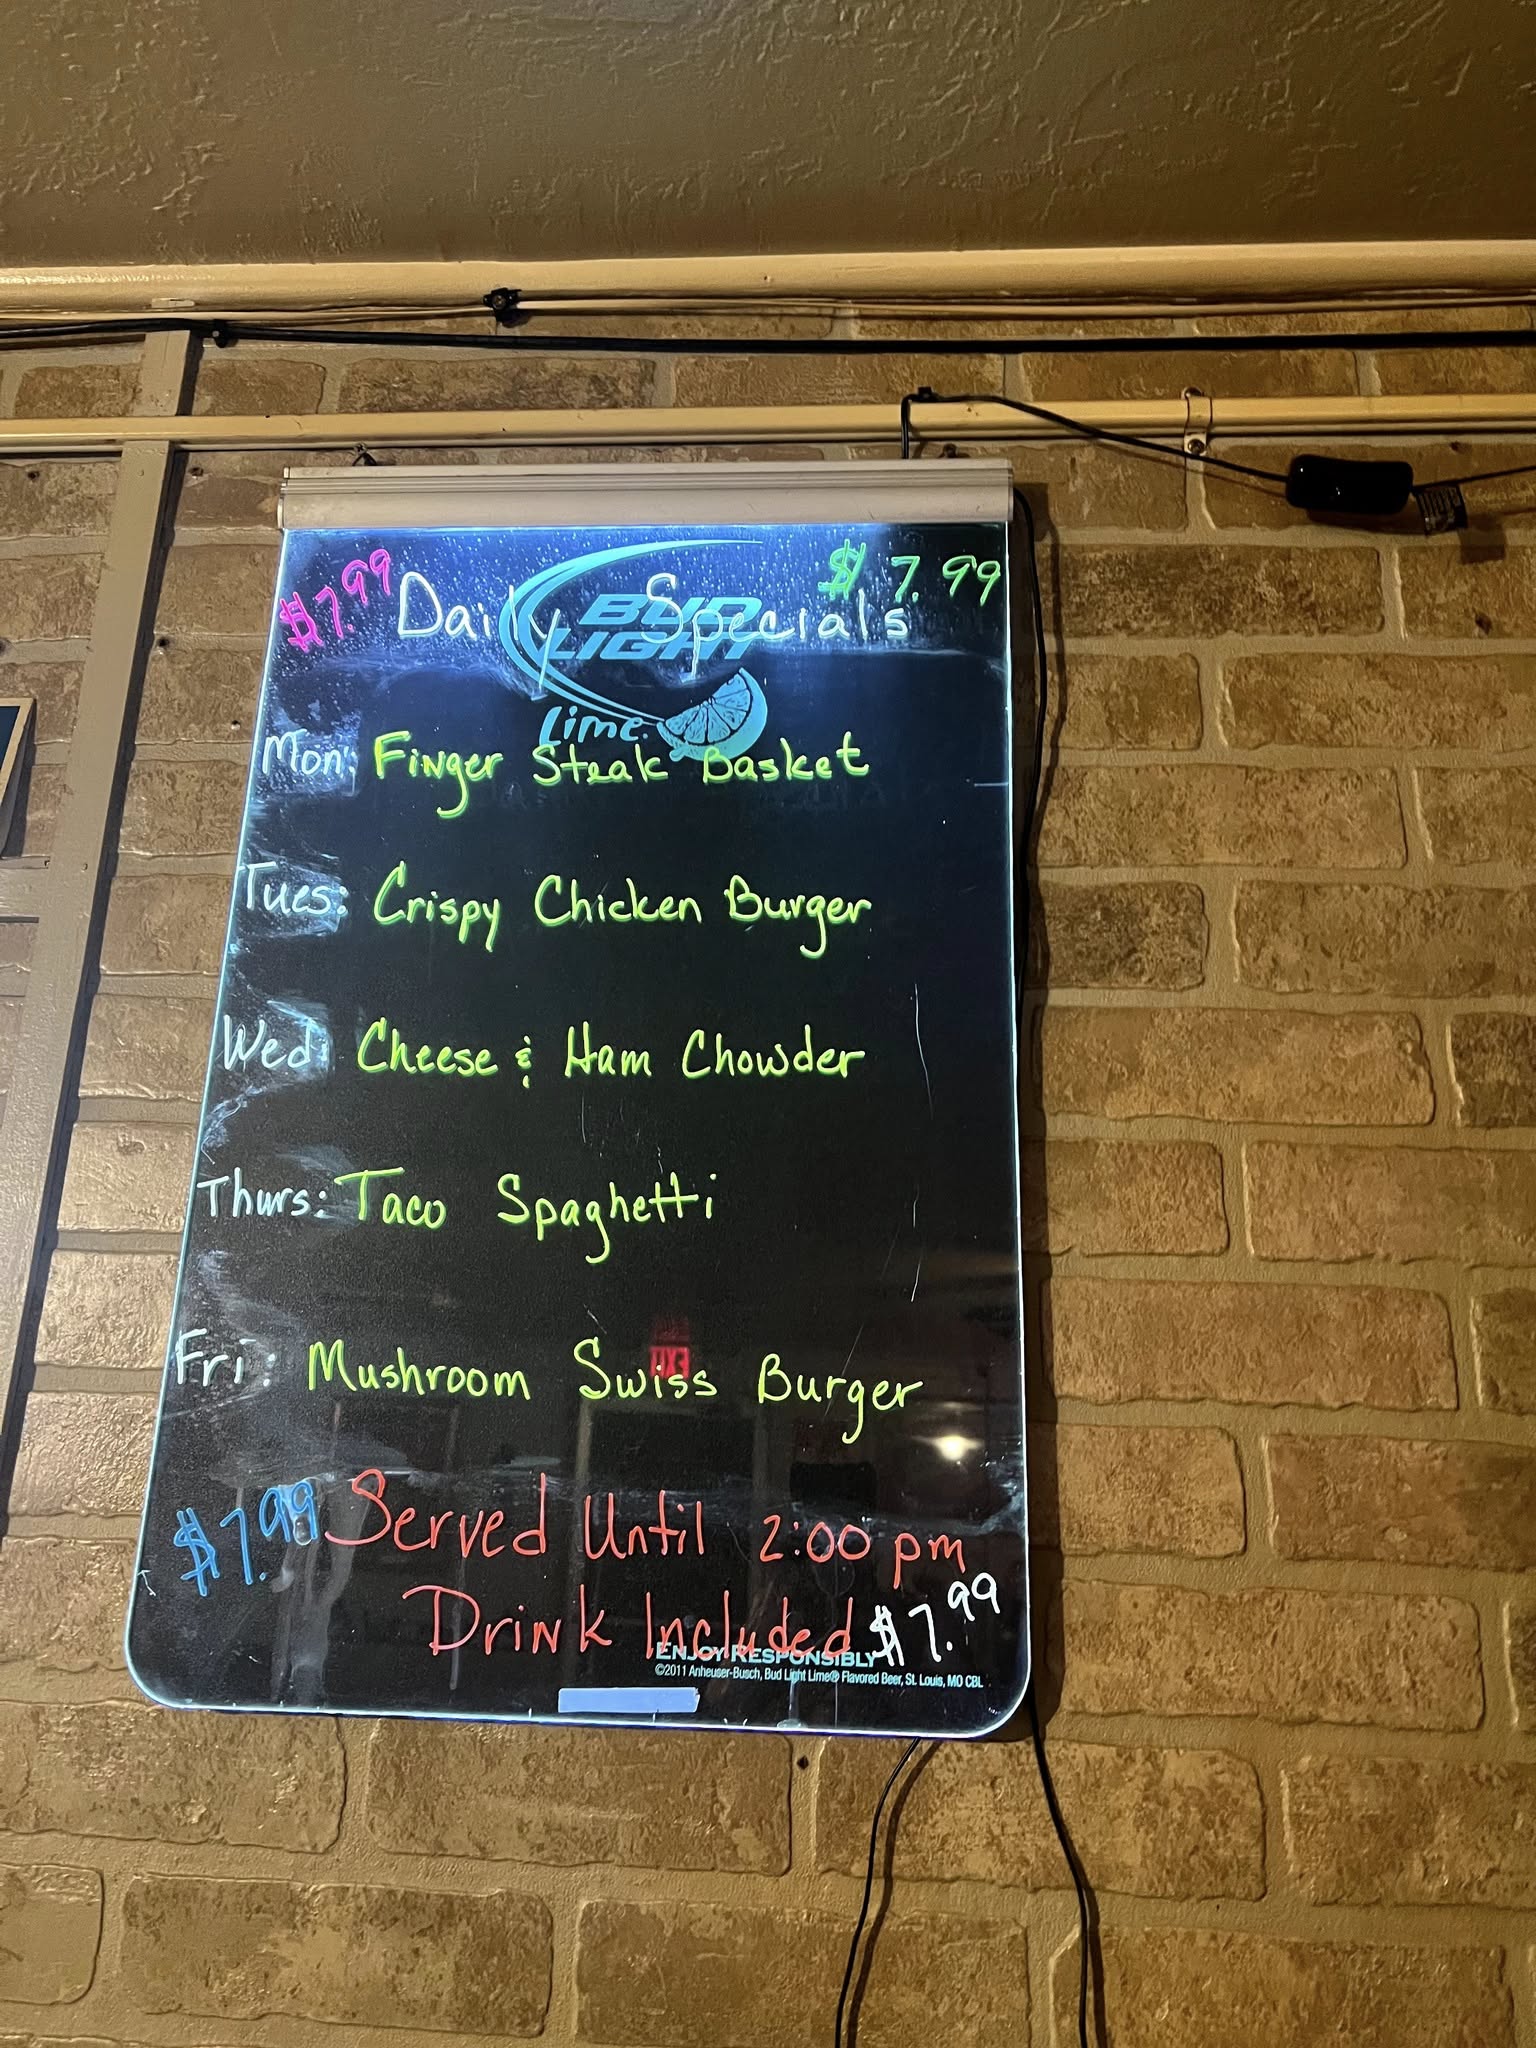 $7.99 Daily Specials $7.99
BUD
LIGHT
Lime
Mon: Finger Steak Basket
Tues: Crispy Chicken Burger
Wed: Cheese & Ham Chowder
Thurs: Taco Spaghetti
Fri: Mushroom Swiss Burger
$7.99 Served Until 2:00 pm
Drink Included $7.99
ENJOY RESPONSIBLY
©2011 Anheuser-Busch, Bud Light Lime® Flavored Beer, St. Louis, MO CBL